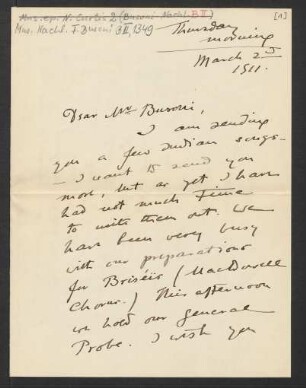 Mus. ep. N. Curtis 2 (Busoni-Nachl. B II)
Mus. Nachl. F. Busoni B II, 1349
[1]
Thursday
morning
March 2nd
1911.
Dear Mr Busoni,
I am sending
you a few Indian songs
— I want to send you
more, but as yet I have
had not much Time
to write them out. We
have been very busy
with our preparations
for Briséis (MacDowell
Chorus.) This afternoon
we hold our general
Probe. I wish you